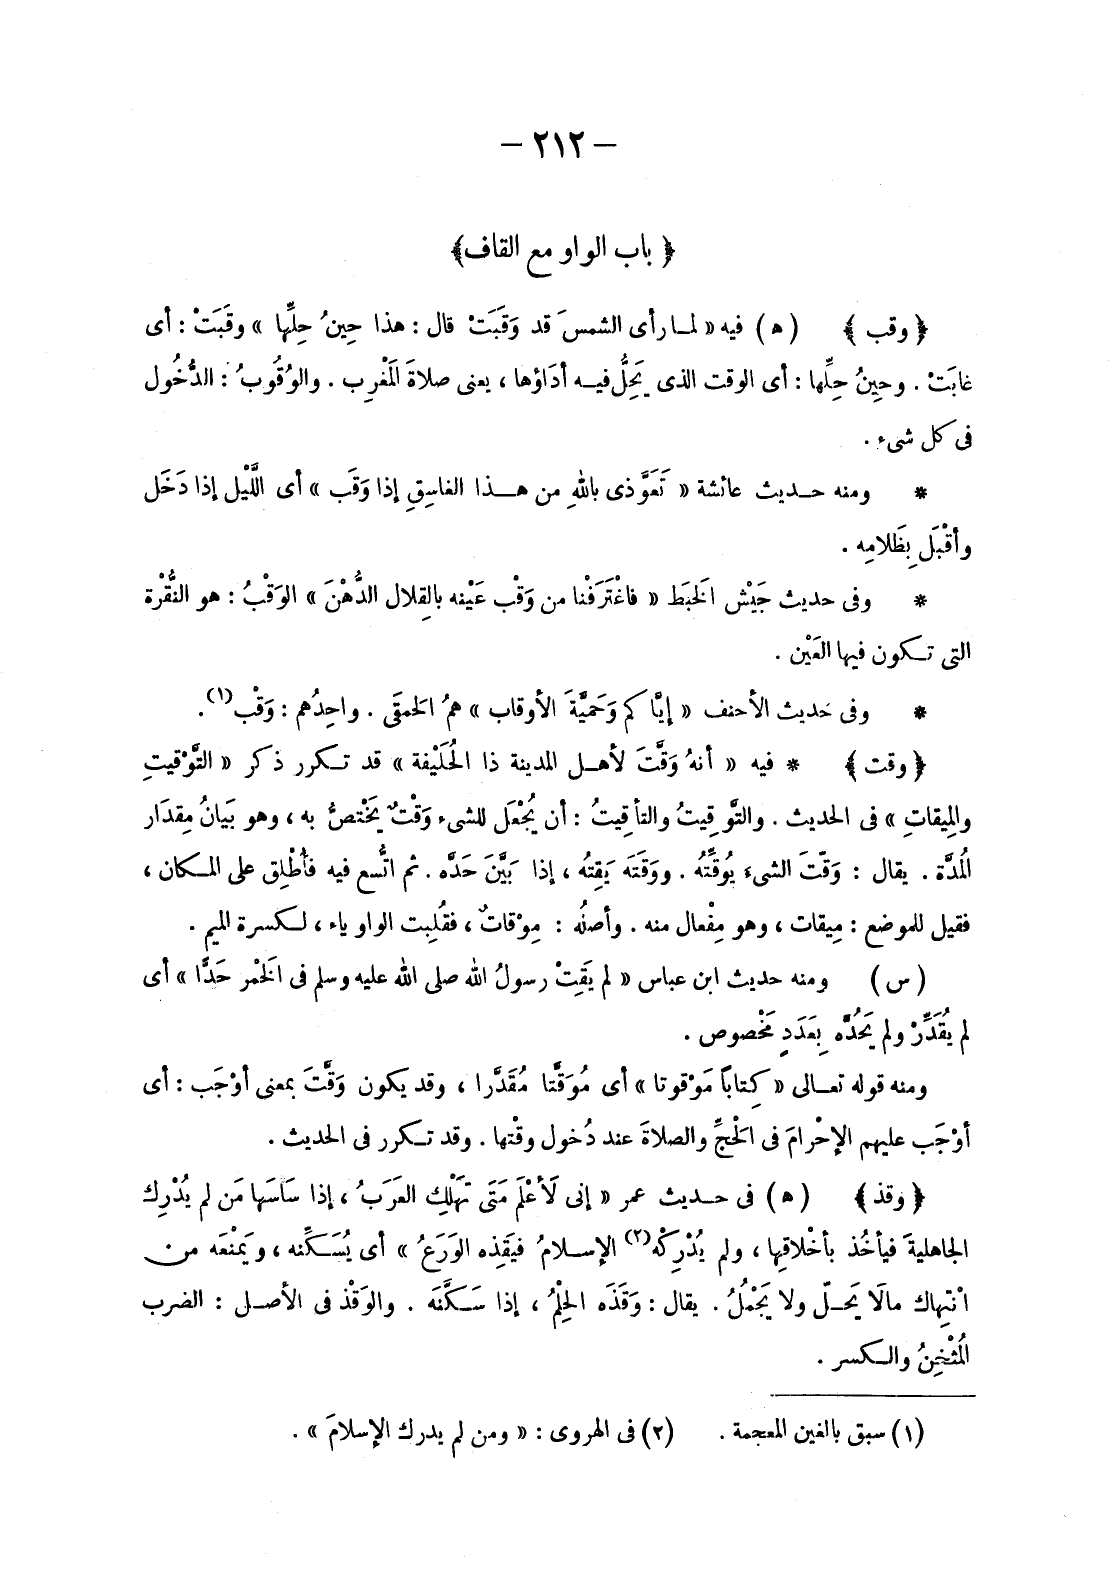 — ٢١٢ —
﴿ باب الواو مع القاف ﴾
﴿ وقب ﴾ (ه) فيه « لما رأى الشمسَ قد وَقَبَتْ قال : هذا حِينُ حِلِّها » وقَبَتْ : أى
غابَتْ . وحِينُ حِلِّها : أى الوقت الذى يَحِلُّ فيه أدَاؤها ، يعنى صلاة المَغْرِب . والوُقُوبُ : الدُّخُول
فى كل شىء .
* ومنه حديث عائشة « تَعَوَّذى باللهِ من هذا الغاسِقِ إذا وَقَب » أى اللَّيْل إذا دَخَل
وأقْبَلَ بِظَلامِه .
* وفى حديث جَيْش الَخبَط « فاغْتَرَفْنا من وَقْب عَيْنه بالقِلال الدُّهْنَ » الوَقْبُ : هو النُّقْرة
التى تكون فيها العَيْن .
* وفى حَديث الأحنف « إيَّاكم وَحَمِيَّةَ الأوقاب » هُمُ الَحمقَى . واحِدُهم : وَقْب(١) .
﴿ وقت ﴾ * فيه « أنهُ وَقَّتَ لأهل المدينة ذا الُحلَيْفة » قد تكرر ذكر « التَّوْقيتِ
والمِيقاتِ » فى الحديث . والتَّوقيتُ والتأقيتُ : أن يُجْعَل للشىء وَقْتٌ يَخْتصُّ به ، وهو بَيَانُ مِقدَار
الُمدَّة . يقال : وَقَّتَ الشىءَ يُوقِّتُه . ووقَتَه يَقِتُه ، إذا بَيَّنَ حَدَّه . ثم اتُّسع فيه فأُطْلِق على المكان ،
فقيل للموضع : مِيقات ، وهو مِفْعال منه . وأصلُه : مِوْقاتٌ ، فقُلِبت الواو ياء ، لكسرة الميم .
(س) ومنه حديث ابن عباس « لم يَقِتْ رسولُ الله صلى الله عليه وسلم فى الَخمْر حَدًّا » أى
لم يُقَدِّرْ ولم يَحُدَّه بِعَدَدٍ مَخْصوص .
ومنه قوله تعالى « كِتاباً مَوْقوتا » أى مُوَقَّتا مُقَدَّرا ، وقد يكون وَقَّتَ بمعنى أوْجَب : أى
أوْجَب عليهم الإحْرامَ فى الَحجِّ والصلاةَ عند دُخول وقْتها . وقد تكرر فى الحديث .
﴿ وقذ ﴾ (ه) فى حديث عمر « إنى لَأعْلَم مَتَى تَهْلِك العَرَبُ ، إذا سَاسَها مَن لم يُدْرِك
الجاهليةَ فيأخُذ بأخْلاقِها ، ولم يُدْرِكْه(٢) الإسلامُ فيَقِذه الوَرَعُ » أى يُسَكِّنه ، ويَمْنَعه من
انْتِهاك مالَا يَحلّ ولا يَجْمُلُ . يقال : وَقَذَه الِحلْمُ ، إذا سَكَّنَه . والوَقْذ فى الأصل : الضرب
الُمثْخِنُ والكسر .
(١) سبق بالغين المعجمة . (٢) فى الهروى : « ومن لم يدرك الإسلامَ » .